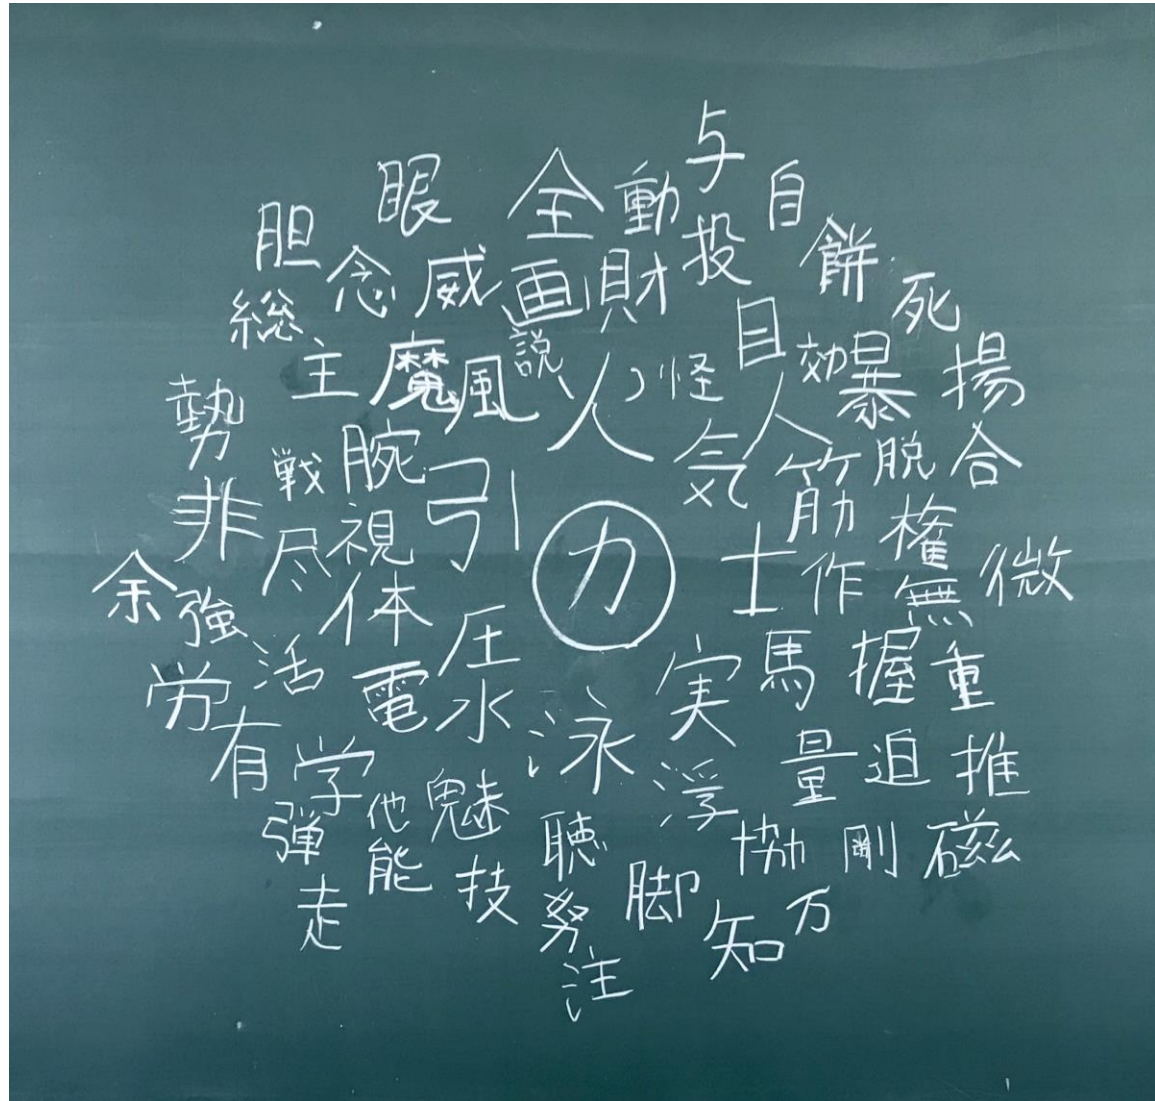 与
眼 全 動 自
胆 念 威 画 財 投 餅 死
総 主 魔 風 説 人 怪 目 効 暴 揚
勢 戦 腕 引 気 人 筋 脱 合
非 尽 視 力 士 作 権 無 微
余 強 体 圧 実 馬 握 重
労 活 電 水 泳
有 学 浮 量 迫 推
弾 他 能 魅 聴 協 剛 磁
走 技 努 脚 知 万
注